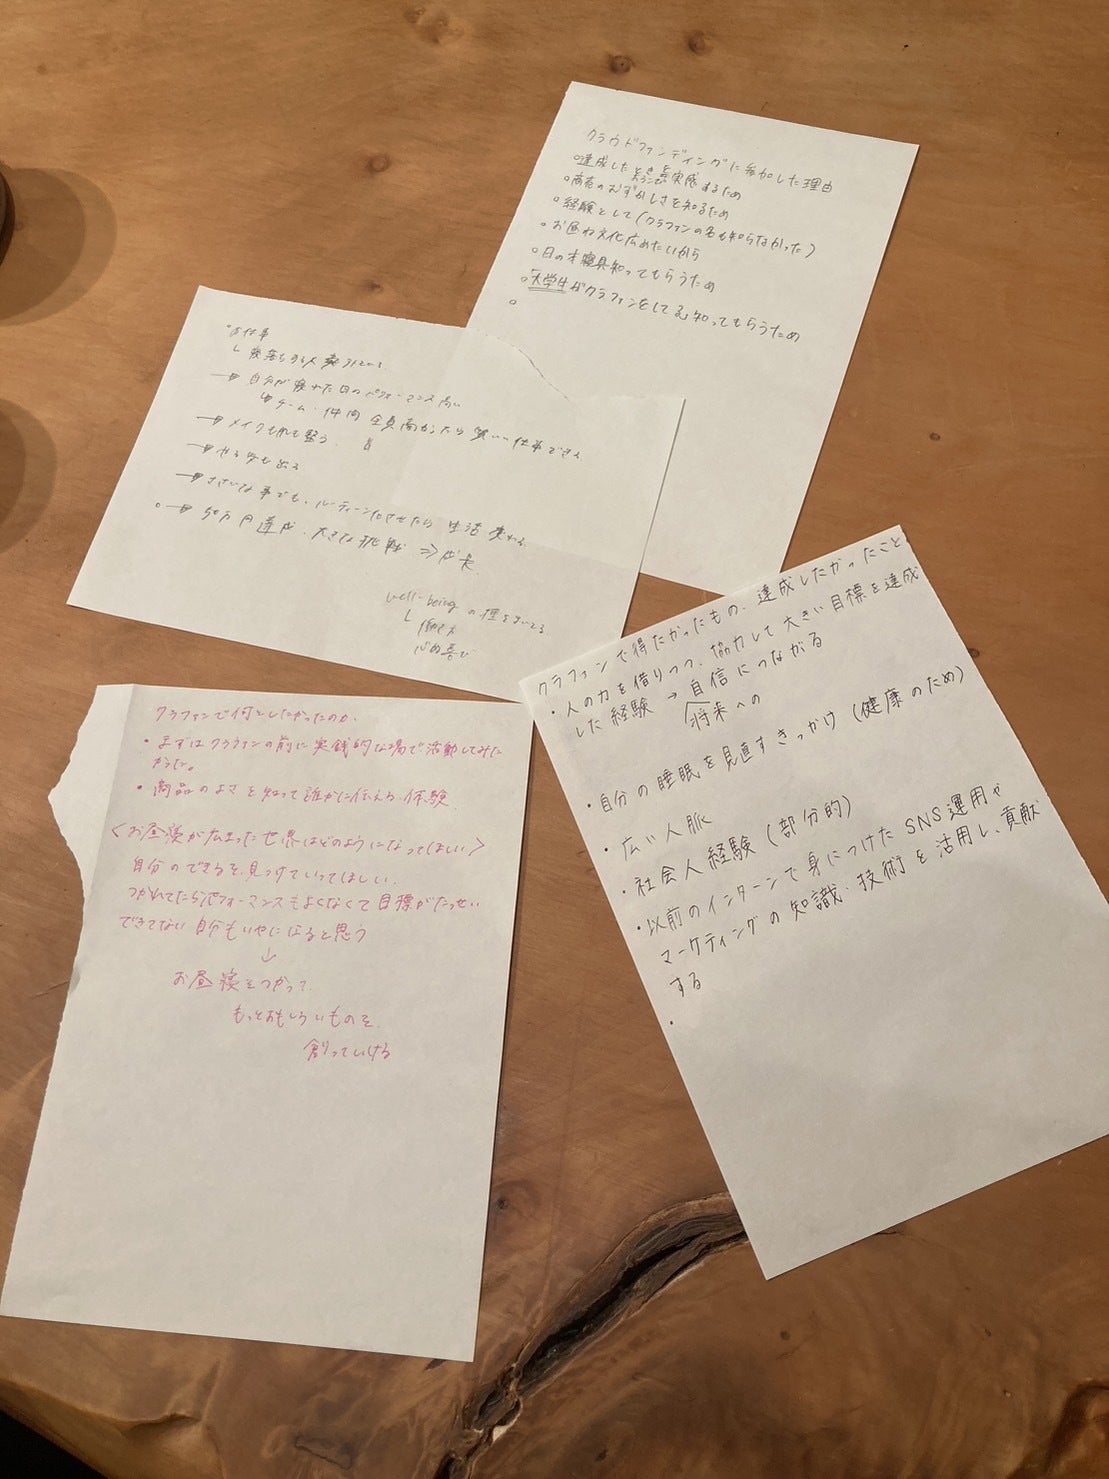 クラウドファンディングに参加した理由
○達成したときのよろこびを実感するため
○商売のむずかしさを知るため
○経験として(クラファンの名も知らなかった)
○お昼ね文化広めたいから
○日の本寝具知ってもらうため
○大学生がクラファンをしてる知ってもらうため
○
○お仕事
└ 寝落ちする人
→ 自分が寝れた日のパフォーマンス高い
チーム・仲間 全員高かったら 良い仕事できる
→ メイクもれも整う、
→ やる気も出る
→ ささいな事でも、ルーティン化させたら 生活 変わる。
○→ 50万円達成、大きな挑戦 ⇒ 成長
well-being の種をまいてる
└ 働き方
心の喜び
クラファンで得たかったもの、達成したかったこと
・人の力を借りつつ、協力して大きい目標を達成
した経験 → 自信につながる
将来への
・自分の睡眠を見直すきっかけ(健康のため)
・広い人脈
・社会人経験(部分的)
・以前のインターンで身につけたSNS運用や
マーケティングの知識・技術を活用し、貢献
する
・
クラファンで何をしたかったのか
・まずはクラファンの前に実銭的な場で活動してみた
かった。
・商品のよさを知って誰かに伝える体験
<お昼寝が広まった世界はどのようになってほしい>
自分のできるを見つけていってほしい、
つかれてたらパフォーマンスもよくなくて目標がたっせい
できてない自分もいやになると思う
↓
お昼寝をつかって、
もっとおもしろいものを、
創っていける